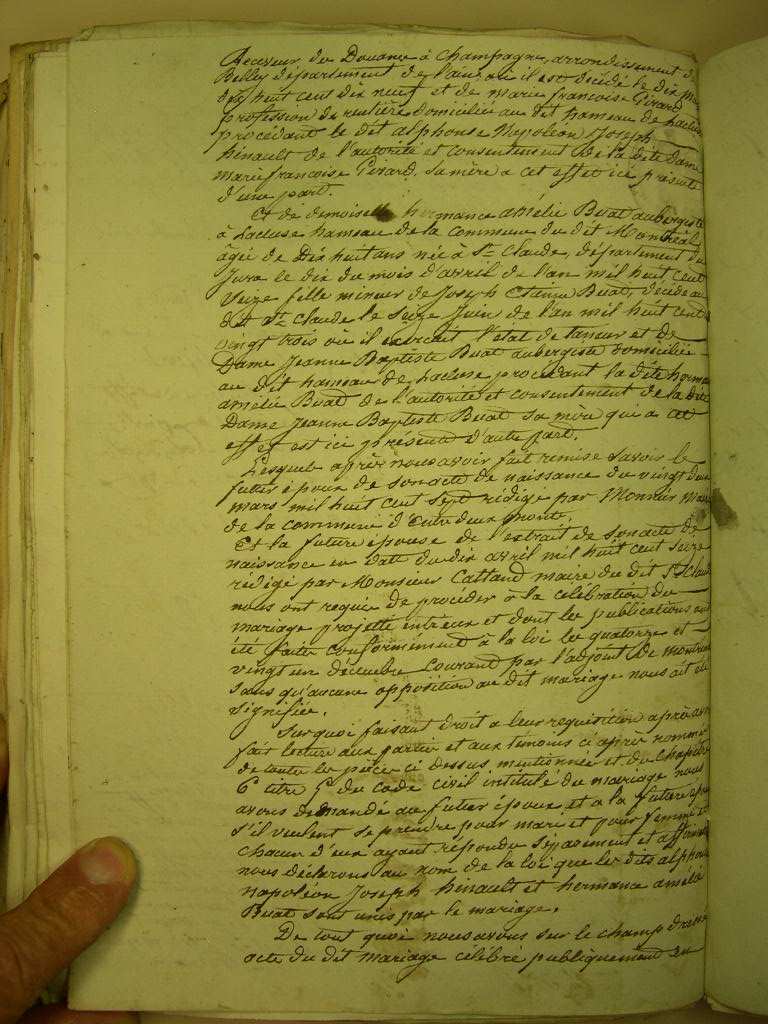 Receveur du Douane à Champagne, arrondissement de
Belley département de l'ain ou il est décédé le dix
dix huit cent dix neuf et de marie francoise Girard
profession de rentière domiciliée au dit hameau de Lacluse
procédant le dit alphonse Napoléon Joseph
hinault de l'autorité et consentement de la dite Dame
marie francoise Girard, sa mère a cet effet ici présente
d'une part.
Et de demoiselle hermance amélie Buat aubergiste
à Lacluse hameau de la commune du dit Montréal
âgée de Dix huit ans née à St. Claude, département du
Jura le dix du mois d'avril de l'an mil huit cent
seize fille mineur de Joseph Etienne Buat, décédé au
dit St. Claude le Seize Juin de l'an mil huit cent
vingt trois où il exercait l'état de taneur et de
Dame Jeanne Baptiste Buat aubergiste domiciliée
au dit hameau de Lacluse procédant la dite herman
amélie Buat de l'autorité et consentement de la dite
Dame Jeanne Baptiste Buat sa mère qui a cet
effet est ici présente d'autre part.
Lesquels après nous avoir fait remise savoir le
futur époux de son acte de naissance du vingt deux
mars mil huit cent sept rédigé par Monsieur Maire
de la commune d'Entre deux
Et la future épouse de l'extrait de son acte de
naissance en date du dix avril mil huit cent seize
rédigé par Monsieur Cattand maire du dit St Claude
nous ont requis de procéder à la célébration du
mariage projetté entr'eux et dont les publications ont
été faites conformément à la loi les quatorze et
vingt un décembre courant par l'adjoint de montréal
sans qu'aucune opposition au dit mariage nous ait été
signifiée.
Sur quoi faisant droit a leur requisition après avoir
fait lecture aux parties et aux témoins ci après nommés
de toutes les pièces ci dessus mentionnées et du chapitre
6 titre 5 du code civil intitulé du mariage nous
avons demandé au futur époux et a la future épouse
s'il veulent se prendre pour mari et pour femme et
chacun d'eux ayant répondu séparément et affirmativ
nous déclarons au nom de la loi que les dits alphonse
napoléon Joseph hinault et hermance amélie
Buat sont unis par le mariage.
De tout quoi nous avons sur le champ dressé
acte du dit mariage célébré publiquement en